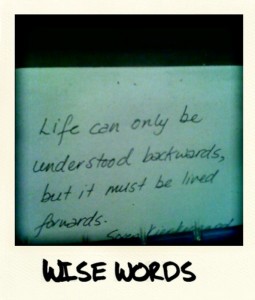 Life can only be
understood backwards,
but it must be lived
forwards.
WISE WORDS